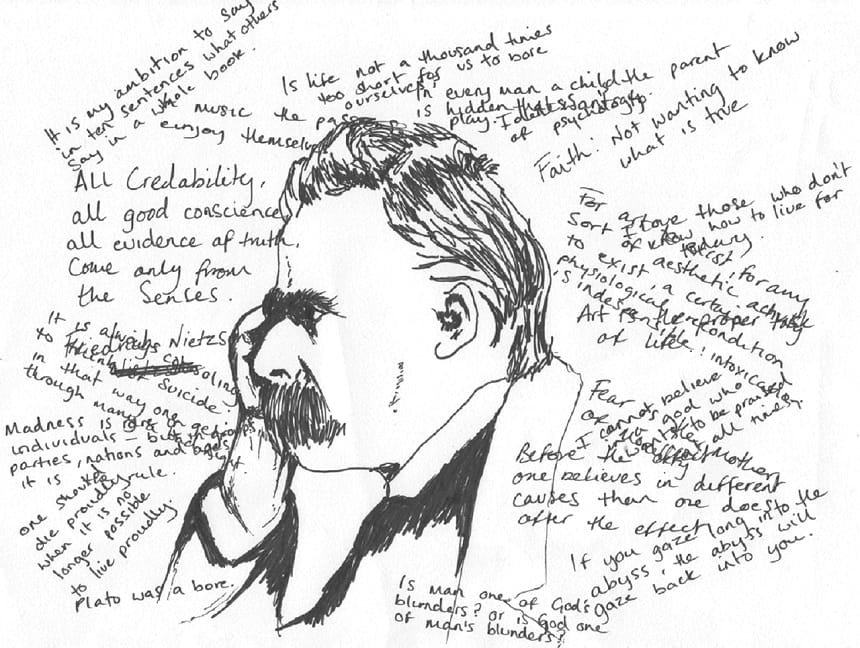 It is my ambition to say
in ten sentences what others
Say in a whole book.
Is life not a thousand times
too short for us to bore
ourselves
In every man a child
is hidden that wants
play. I
the parent
of psychology.
Faith: Not wanting to know
what is true
music the
enjoy themselves
All Credability,
all good conscience
all evidence of truth,
Come only from
the Senses.
For art
Sort of
to exist, for any
aesthetic activity
to exist, a certain
physiological
is indes
intoxication
I love those who don't
know how to live for
today.
Art is the proper task
of life.
It is
to
in that way one
through many
Friedrich Nietzs
Suicide
Madness is rare in
individuals – but in groups
parties, nations and ages
it is rule.
one should
die proudly
when it is no
longer possible
to live proudly.
Plato was a bore.
Fear
of
I cannot believe
in a god who
wants to be praised
all the time.
mother
Before the effect
one believes in different
causes than one does
after the effect
If you gaze long into the
abyss, the abyss will
gaze back into you.
Is man one of God's
blunders? or is god one
of man's blunders?